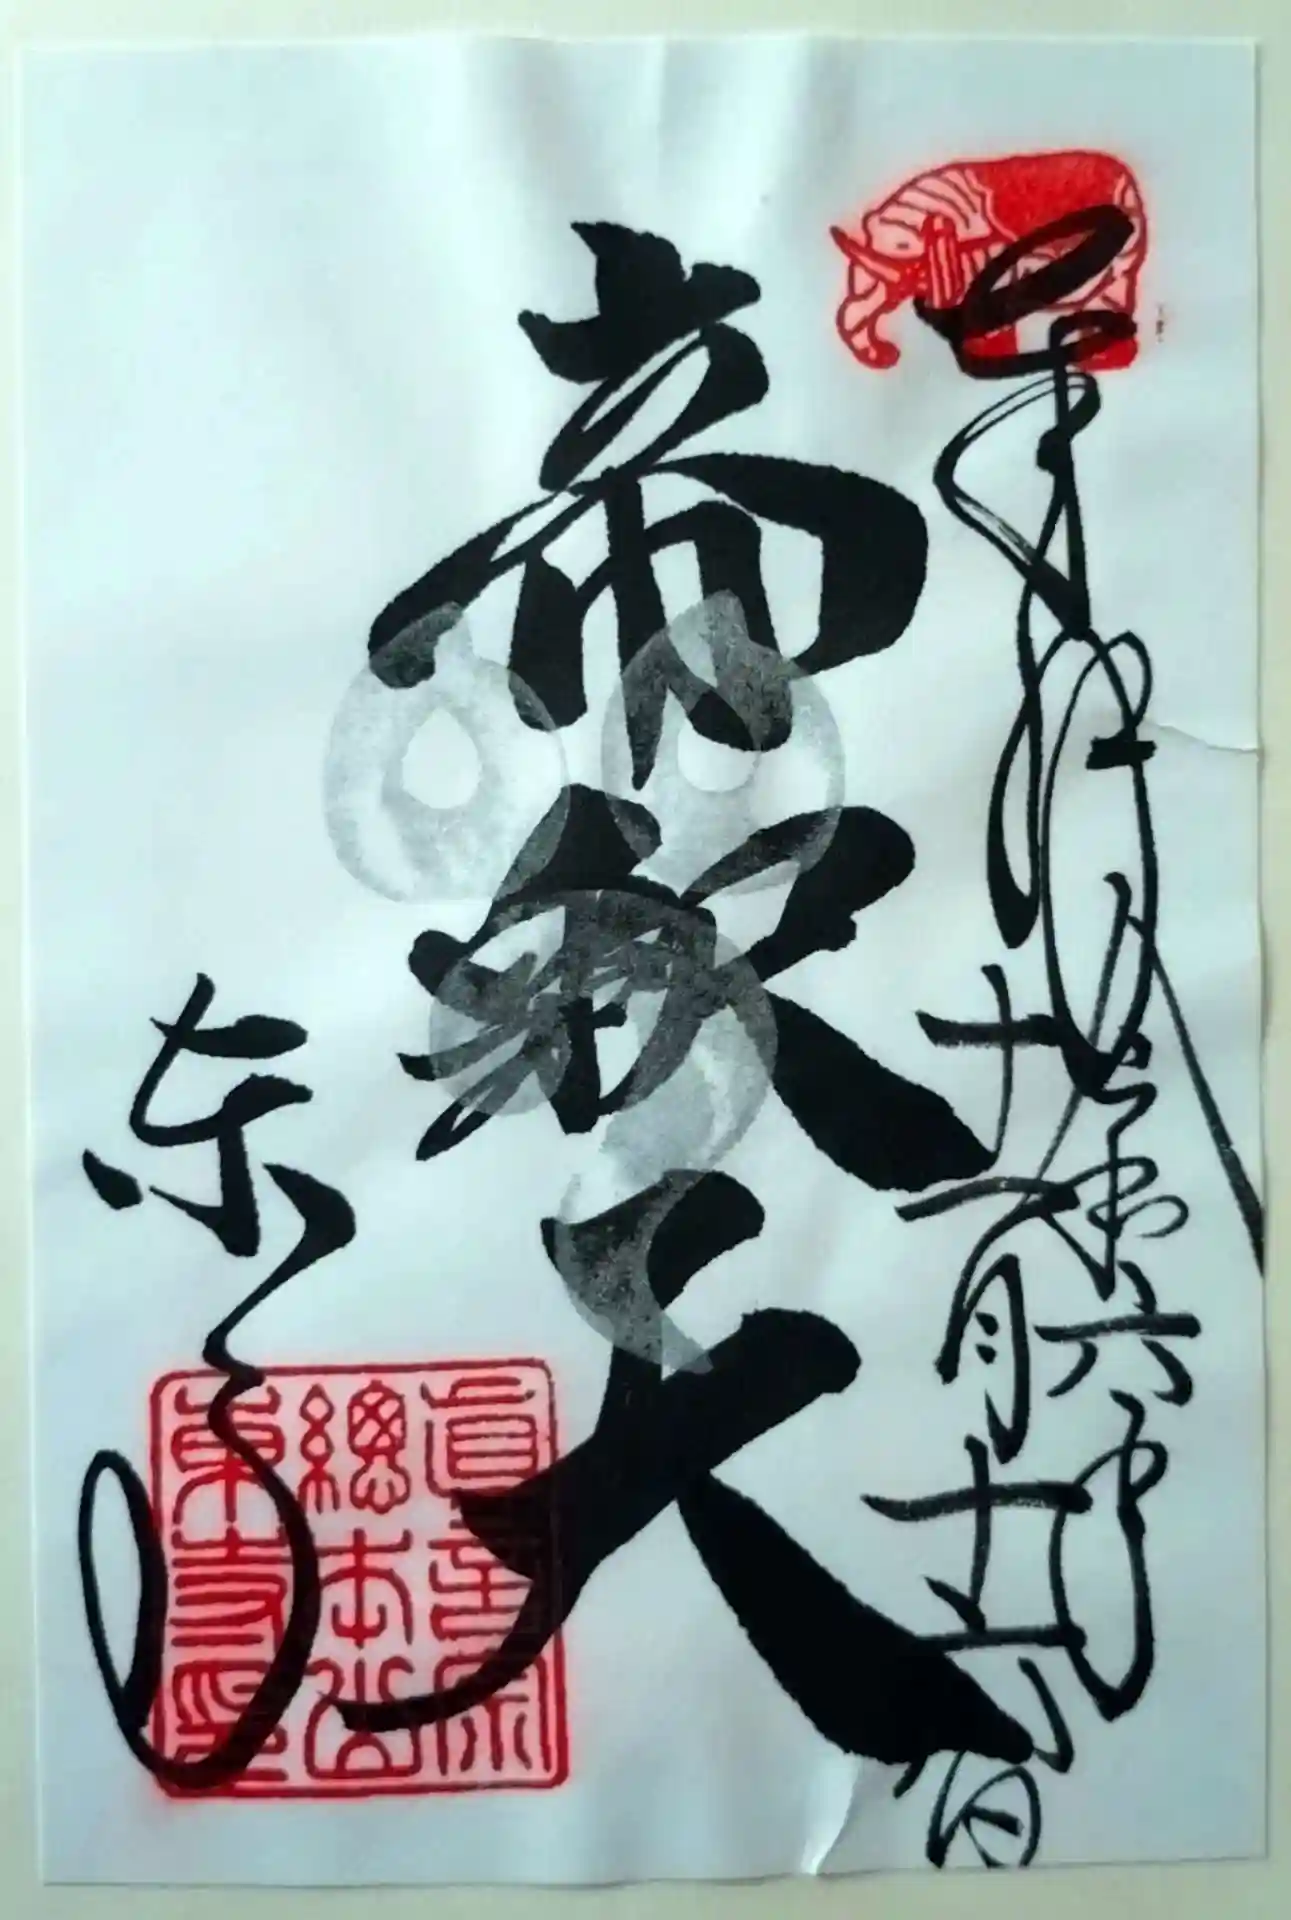 奉拝
令和六年
十一月十六日
帝釈天
東寺
眞言宗
總本山
東寺印